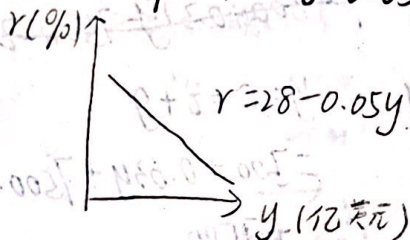 r(%)
r=28-0.05y
y (亿美元)